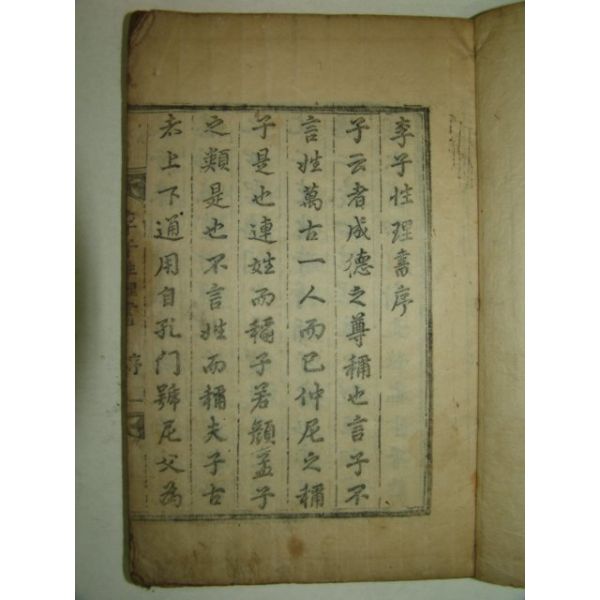 李子性理書序
子云者成德之尊稱也言子不
言姓萬古一人而已仲尼之稱
子是也連姓而稱子若顏孟子
之類是也不言姓而稱夫子古
者上下通用自孔门號尼父為
李子性理書 序 一